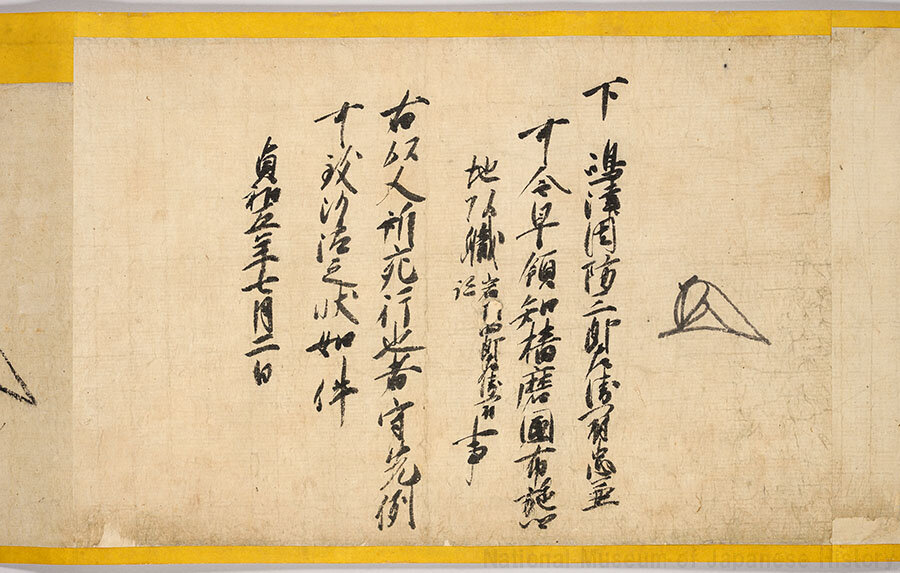 下 嶋津周防二郎左衛門尉忠兼
可令早領知播磨国布施郷
地頭職
右以人所宛行也者守先例
可致沙汰之状如件
貞和五年七月二日
National Museum of Japanese History